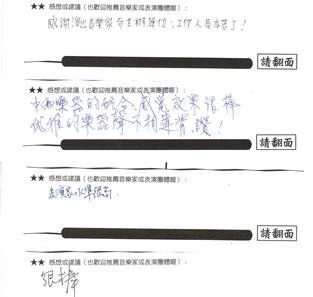 ★★ 感想或建議（也歡迎推薦音樂家或表演團體喔）：
感謝演出音樂家及主辦單位，工作人員辛苦了！
請翻面
★★ 感想或建議（也歡迎推薦音樂家或表演團體喔）：
中西樂器的結合感覺效果很棒
優雅的樂器聲不相違背，讚！
請翻面
★★ 感想或建議（也歡迎推薦音樂家或表演團體喔）：
表演家水準很高
請翻面
★★ 感想或建議（也歡迎推薦音樂家或表演團體喔）：
很棒